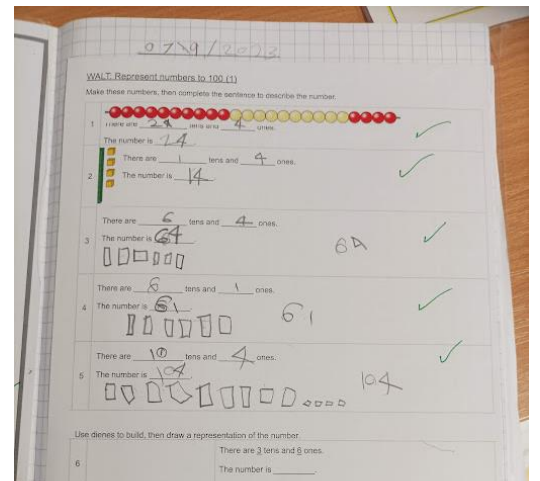 07/9/2023
WALT: Represent numbers to 100 (1)
Make these numbers, then complete the sentence to describe the number.
1 There are 24 tens and 4 ones.
The number is 24
2 There are 1 tens and 4 ones.
The number is 14
There are 6 tens and 4 ones.
3 The number is 64 64
There are 6 tens and 1 ones.
4 The number is 61 61
There are 10 tens and 4 ones.
5 The number is 104 104
Use dienes to build, then draw a representation of the number.
6 There are 3 tens and 6 ones.
The number is ________.